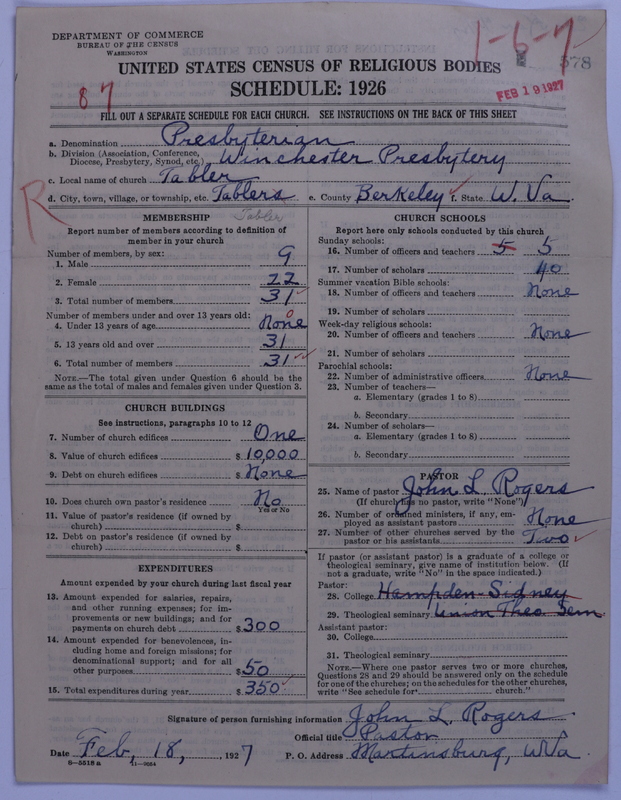 DEPARTMENT OF COMMERCE
BUREAU OF THE CENSUS
WASHINGTON
1-6-7
578
UNITED STATES CENSUS OF RELIGIOUS BODIES
87
SCHEDULE: 1926
FEB 19 1927
FILL OUT A SEPARATE SCHEDULE FOR EACH CHURCH. SEE INSTRUCTIONS ON THE BACK OF THIS SHEET
a. Denomination Presbyterian
b. Division (Association, Conference, Diocese, Presbytery, Synod, etc.) Winchester Presbytery
c. Local name of church Tabler
R
d. City, town, village, or township, etc. Tablers e. County Berkeley f. State W. Va.
Tabler
MEMBERSHIP
Report number of members according to definition of
member in your church
Number of members, by sex:
1. Male 9
2. Female 22
3. Total number of members 31
Number of members under and over 13 years old:
4. Under 13 years of age None 0
5. 13 years old and over 31
6. Total number of members 31
NOTE.—The total given under Question 6 should be the
same as the total of males and females given under Question 3.
CHURCH BUILDINGS
See instructions, paragraphs 10 to 12
7. Number of church edifices One
8. Value of church edifices $ 10,000
9. Debt on church edifices $ None
10. Does church own pastor's residence No
Yes or No
11. Value of pastor's residence (if owned by
church) $
12. Debt on pastor's residence (if owned by
church) $
EXPENDITURES
Amount expended by your church during last fiscal year
13. Amount expended for salaries, repairs,
and other running expenses; for im-
provements or new buildings; and for
payments on church debt $ 300
14. Amount expended for benevolences, in-
cluding home and foreign missions; for
denominational support; and for all
other purposes $ 50
15. Total expenditures during year $ 350
CHURCH SCHOOLS
Report here only schools conducted by this church
Sunday schools:
16. Number of officers and teachers 5 5
17. Number of scholars 40
Summer vacation Bible schools:
18. Number of officers and teachers None
19. Number of scholars
Week-day religious schools:
20. Number of officers and teachers None
21. Number of scholars
Parochial schools:
22. Number of administrative officers None
23. Number of teachers—
a. Elementary (grades 1 to 8)
b. Secondary
24. Number of scholars—
a. Elementary (grades 1 to 8)
b. Secondary
PASTOR
25. Name of pastor John L. Rogers
(If church has no pastor, write "None")
26. Number of ordained ministers, if any, em-
ployed as assistant pastors None
27. Number of other churches served by the
pastor or his assistants Two
If pastor (or assistant pastor) is a graduate of a college or
theological seminary, give name of institution below. (If
not a graduate, write "No" in the space indicated.)
Pastor:
28. College Hampden-Sidney
29. Theological seminary Union Theo. Sem
Assistant pastor:
30. College
31. Theological seminary
NOTE.—Where one pastor serves two or more churches,
Questions 28 and 29 should be answered only on the schedule
for one of the churches; on the schedules for the other churches,
write "See schedule for church."
Signature of person furnishing information John L. Rogers
Official title Pastor
Date Feb, 18, 1927 P. O. Address Martinsburg, W.Va.
6-5518 a 11-9064